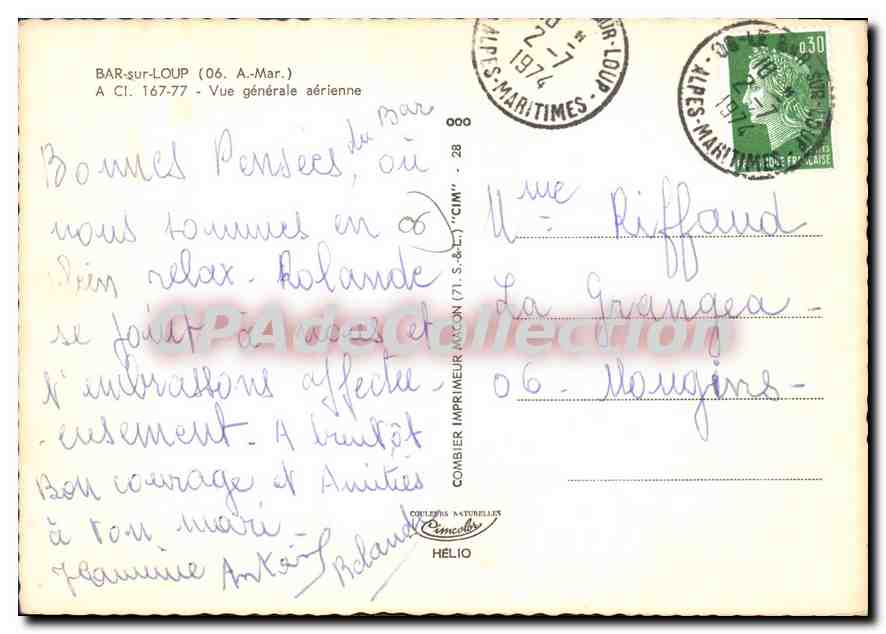 BAR-sur-LOUP (06. A.-Mar.)
A Cl. 167-77 - Vue générale aérienne
Bonnes Pensées du Bar, où
nous sommes en
bien relax - Rolande
se joint à nous et
t'embrassons affectu-
-eusement - A bientôt
Bon courage et Amitiés
à ton mari -
Jeannine Rolande
COMBIER IMPRIMEUR MACON (71. S.-&-L.) "CIM" - 28
COULEURS NATURELLES
Cimcolor
HÉLIO
18 H
2-7
1974
SUR-LOUP
ALPES-MARITIMES
06-LE BAR-SUR-LOUP
18 H
2-7
1974
ALPES-MARITIMES
0,30
FRANÇAISE
Mme Riffaud
La Grangea -
06 - Mougins -
CPAdeCollection